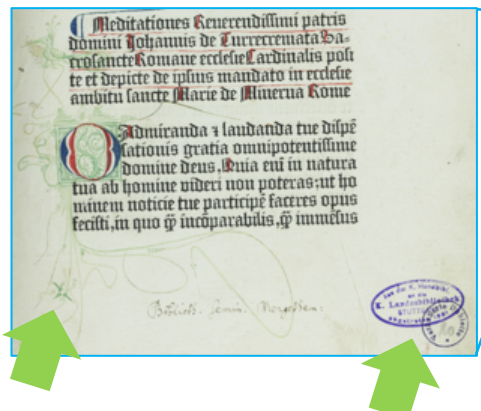 Meditationes Reuerendissimi patris
domini Johannis de Turrecremata Sa-
crosancte Romane ecclesie Cardinalis posi
te et depicte de ipsius mandato in ecclesie
ambitu sancte Marie de Minerua Rome
O Admiranda ⁊ laudanda tue dispē
sationis gratia omnipotentissime
domine deus, Quia eni in natura
tua ab homine videri non poteras; ut ho
minem noticie tue participē faceres opus
fecisti, in quo q̄ꝫ incōparabilis, q̄ꝫ immēsus
Biblioth. Semin.
Aus der K. Handbibl.
an die
K. Landesbibliothek
STUTTGART